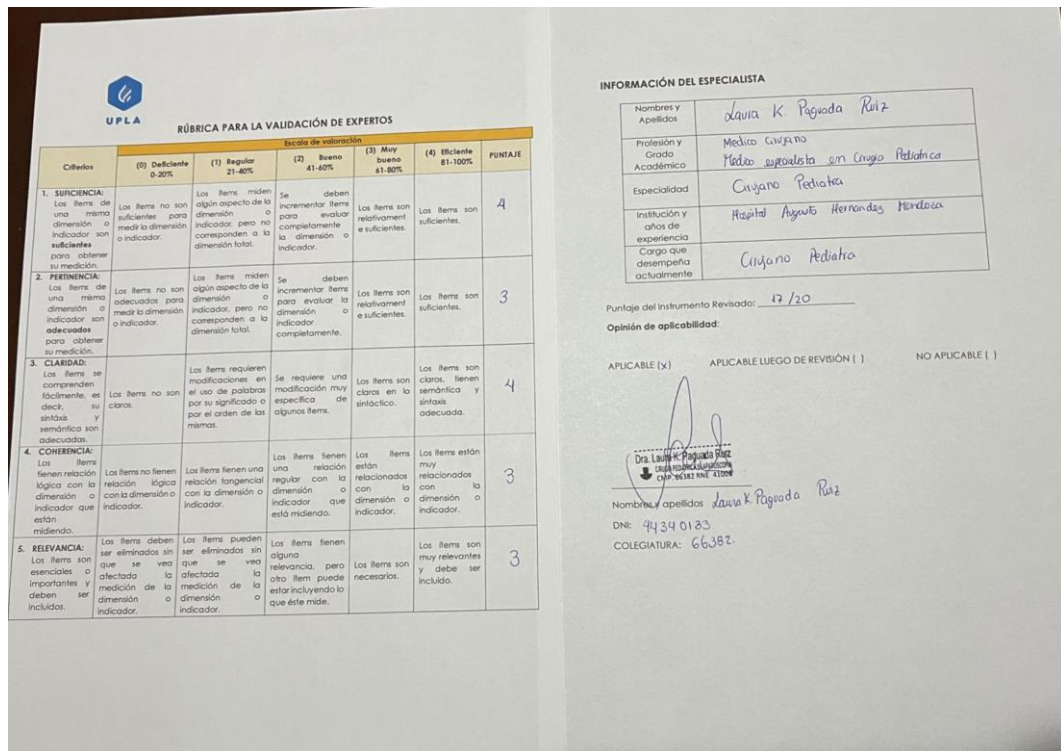 UPLA
RÚBRICA PARA LA VALIDACIÓN DE EXPERTOS
Escala de valoración
Criterios
(0) Deficiente
0-20%
(1) Regular
21-40%
(2) Bueno
41-60%
(3) Muy
bueno
61-80%
(4) Eficiente
81-100%
PUNTAJE
1. SUFICIENCIA:
Los ítems de
una misma
dimensión o
indicador son
suficientes
para obtener
su medición.
Los ítems no son
suficientes para
medir la dimensión
o indicador.
Los ítems miden
algún aspecto de la
dimensión o
indicador, pero no
corresponden a la
dimensión total.
Se deben
incrementar ítems
para evaluar
completamente
la dimensión o
indicador.
Los ítems son
relativament
e suficientes.
Los ítems son
suficientes.
4
2. PERTINENCIA:
Los ítems de
una misma
dimensión o
indicador son
adecuados
para obtener
su medición.
Los ítems no son
adecuados para
medir la dimensión
o indicador.
Los ítems miden
algún aspecto de la
dimensión o
indicador, pero no
corresponden a la
dimensión total.
Se deben
incrementar ítems
para evaluar la
dimensión o
indicador
completamente.
Los ítems son
relativament
e suficientes.
Los ítems son
suficientes.
3
3. CLARIDAD:
Los ítems se
comprenden
fácilmente, es
decir, su
sintáxis y
semántica son
adecuadas.
Los ítems no son
claros.
Los ítems requieren
modificaciones en
el uso de palabras
por su significado o
por el orden de las
mismas.
Se requiere una
modificación muy
específica de
algunos ítems.
Los ítems son
claros en lo
sintáctico.
Los ítems son
claros, tienen
semántica y
sintaxis
adecuada.
4
4. COHERENCIA:
Los ítems
tienen relación
lógica con la
dimensión o
indicador que
están
midiendo.
Los ítems no tienen
relación lógica
con la dimensión o
indicador.
Los ítems tienen una
relación tangencial
con la dimensión o
indicador.
Los ítems tienen
una relación
regular con la
dimensión o
indicador que
está midiendo.
Los ítems
están
relacionados
con la
dimensión o
indicador.
Los ítems están
muy
relacionados
con la
dimensión o
indicador.
3
5. RELEVANCIA:
Los ítems son
esenciales o
importantes y
deben ser
incluidos.
Los ítems deben
ser eliminados sin
que se vea
afectada la
medición de la
dimensión o
indicador.
Los ítems pueden
ser eliminados sin
que se vea
afectada la
medición de la
dimensión o
indicador.
Los ítems tienen
alguna
relevancia, pero
otro ítem puede
estar incluyendo lo
que éste mide.
Los ítems son
necesarios.
Los ítems son
muy relevantes
y debe ser
incluido.
3
INFORMACIÓN DEL ESPECIALISTA
Nombres y
Apellidos
Laura K. Paguada Ruiz
Profesión y
Grado
Académico
Medico Cirujano
Medico especialista en Cirugia Pediatrica
Especialidad
Cirujano Pediatra
Institución y
años de
experiencia
Hospital Augusto Hernandez Mendoza
Cargo que
desempeña
actualmente
Cirujano Pediatra
Puntaje del Instrumento Revisado: 17/20
Opinión de aplicabilidad:
APLICABLE (x) APLICABLE LUEGO DE REVISIÓN ( ) NO APLICABLE ( )
Dra. Laura K. Paguada Ruiz
CMP. 66382 RNE 41009
Nombres y apellidos Laura K Paguada Ruiz
DNI: 44340133
COLEGIATURA: 66382.